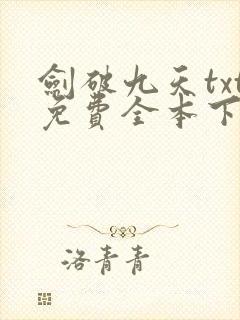 劍破九天txt
免費全本下
洛青青